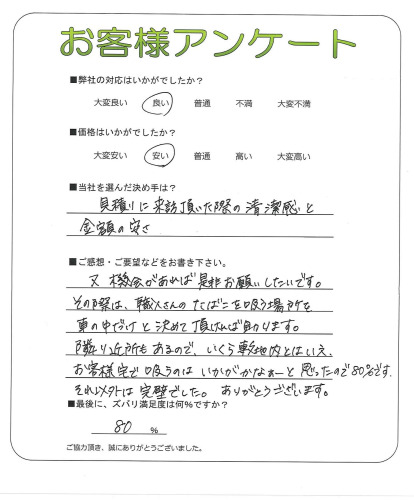 お客様アンケート
■弊社の対応はいかがでしたか？
大変良い 良い 普通 不満 大変不満
■価格はいかがでしたか？
大変安い 安い 普通 高い 大変高い
■当社を選んだ決め手は？
見積りに来訪頂いた際の清潔感と
金額の安さ
■ご感想・ご要望などをお書き下さい。
又機会があれば是非お願いしたいです。
その際は、職人さんのたばこを吸う場所を
車の中だけと決めて頂ければ助かります。
隣り近所もあるので、いくら敷地内とはいえ、
お客様宅で吸うのはいかがかなぁーと思ったので80%です。
それ以外は完璧でした。ありがとうございます。
■最後に、ズバリ満足度は何%ですか？
80 %
ご協力頂き、誠にありがとうございました。